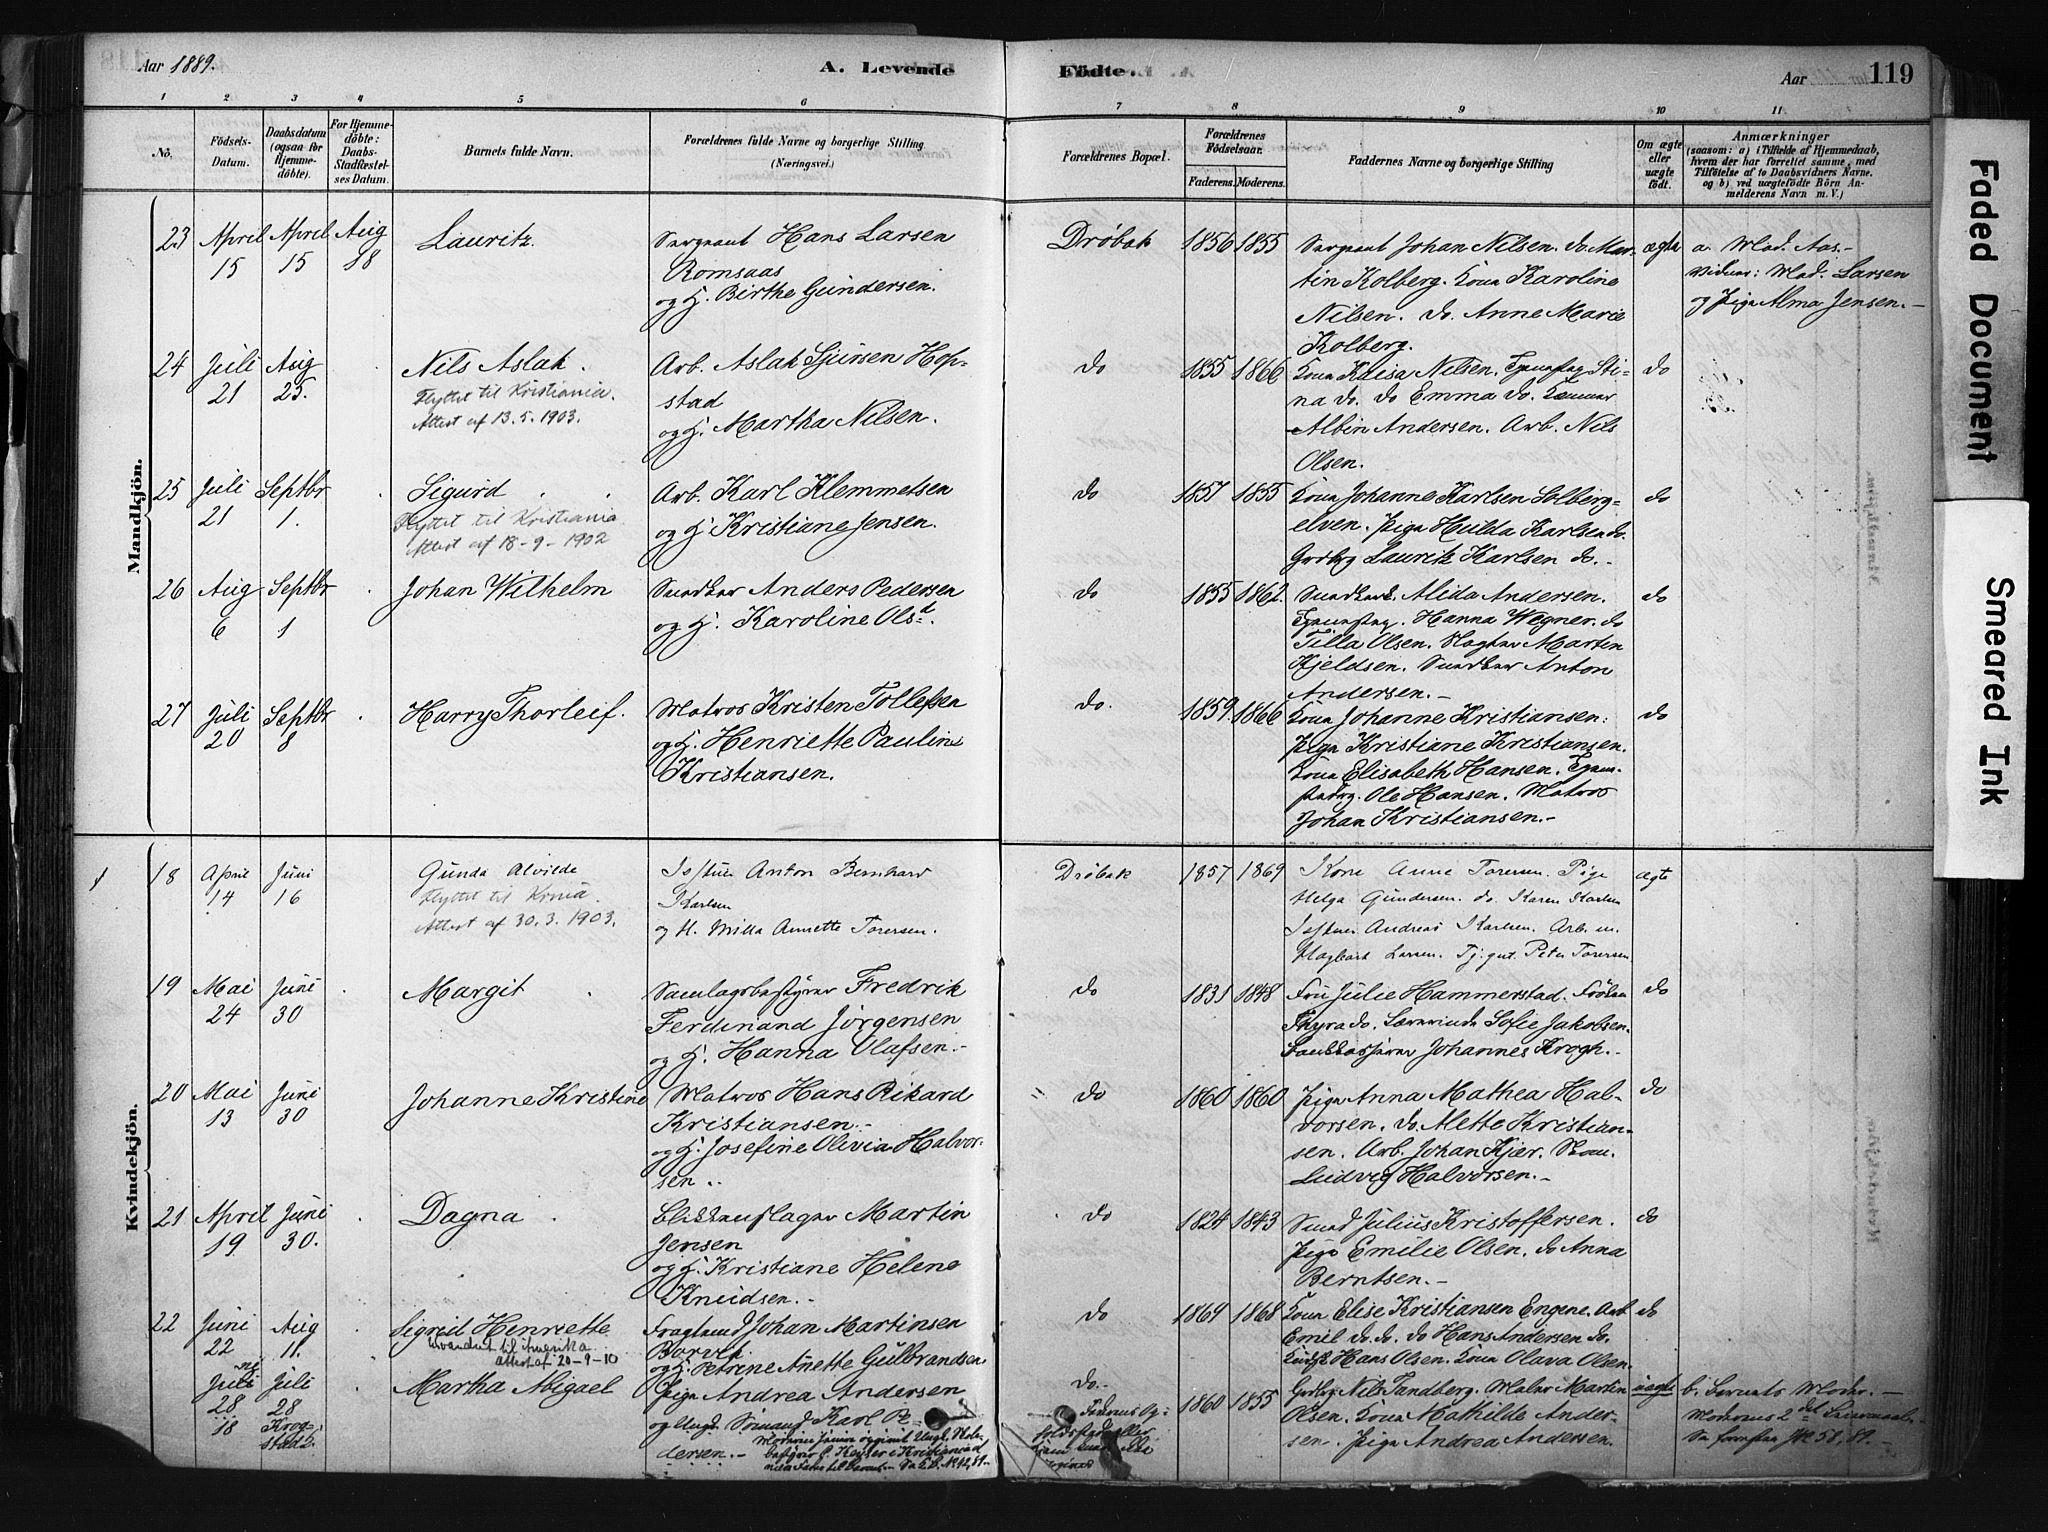 Aar 1889.
A. Levende Fødte.
Aar
119
1 2 3 4 5 6 7 8 9 10 11
No.
Fødsels-Datum.
Daabsdatum (ogsaa for Hjemmedøbte).
For Hjemmedøbte: Daabs-Stadfæstelses Datum.
Barnets fulde Navn.
Forældrenes fulde Navne og borgerlige Stilling (Næringsvei.)
Forældrenes Bopæl.
Forældrenes Fødselsaar.
Faderens. Moderens.
Faddernes Navne og borgerlige Stilling
Om ægte eller uægte født.
Anmærkninger
(saasom: a) i Tilfælde af Hjemmedaab, hvem der har forrettet samme, med Tilføielse af to Daabsvidners Navne, og b) ved uægtefødte Børn Anmelderens Navn m.V.)
Mandkjøn.
23 April 15 April 15 Aug 18
Lauritz.
Sergeant Hans Larsen
Romsaas
og H. Birthe Gundersen.
Drøbak 1856 1855
Sergeant Johan Nilsen. do. Mar-
tin Kolberg. Kone Karoline
Nilsen. do. Anne Marie
Kolberg.
ægte
a. Mad. Aas.-
Vidner: Mad. Larsen
og Pige Alma Jensen.-
24 Juli 21 Aug 25.
Nils Aslak.
Flyttet til Kristiania.
Attest af 13.5.1903.
Arb. Aslak Sjursen Hop-
stad
og H. Martha Nilsen.
do 1855 1866
Nilsen. Sti-
na do. do Emma do.
Albin Andersen. Arb. Nils
Olsen.
do
25 Juli 21 Septbr 1.
Sigurd
Flyttet til Kristiania
Attest af 18-9-1902
Arb. Karl Klemmetsen
og H Kristiane Jensen.
do 1857 1855
Kone Johanne Karlsen Solberg-
elven. Pige Hulda Karlsen do.
Lauritz Karlsen do.-
do
26 Aug 6 Septbr 1
Johan Wilhelm
Anders Pedersen
og H. Karoline Olsd.
do 1855 1862.
Alida Andersen.
Hanna Wegner. do
Tilla Olsen. Martin
Kjeldsen. Anton
Andersen.-
do
27 Juli 20 Septbr 8
Harry Thorleif.
Matros Kristen Tollefsen
og H. Henriette Pauline
Kristiansen.
do. 1859. 1866
Kone Johanne Kristiansen.
Pige Kristiane Kristiansen.
Kone Elisabeth Hansen.
Ole Hansen. Matros
Johan Kristiansen.-
do
Kvindekjøn.
18 April 14 Juni 16
Gunda Alvilde
Flyttet til Krnia.
Attest af 30.3.1903.
Anton Bernhard
Karlsen
og H. Milla Annette Torersen.
Drøbak 1857 1869
Kone Anne Torersen. Pige
Helga Gundersen. do. Karen Karlsen
Andreas Karlsen. Arb. m.
Hagbart Larsen. Tj.gut. Peter Torersen
ægte
19 Mai 24 Juni 30
Margit
Samlagsbestyrer Fredrik
Ferdinand Jørgensen
og H. Hanna Olafsen.-
do 1831 1848
Fru Julie Hammerstad. Frøken
Thyra do. Lærerinde Sofie Jakobsen.
Johannes Krogh.-
do
20 Mai 13 Juni 30
Johanne Kristine
Matros Hans Rikard
Kristiansen.-
og H. Josefine Olivia Halvor-
sen.
do 1860 1860
Pige Anna Mathea Hal-
vorsen. do. Alette Kristian-
sen. Arb. Johan Kjær.
Ludvig Halvorsen.-
do
21 April 19 Juni 30.
Dagna
Blikkenslager Martin
Jensen
og H. Kristiane Helene
Knudsen.-
do 1824 1843
Smed Julius Kristoffersen.
Pige Emilie Olsen. do Anna
Berntsen.-
do
22 Juni 22 Aug 11.
Sigrid Henriette
Udvandret til Amerika
attest af 20-9-10
Johan Martinsen
Borvik
og H. Petrine Anette Gulbrandsen
do 1869 1868
Kone Elise Kristiansen Engene. Arb
Emil do. do. do Hans Andersen do.
Hans Olsen. Kone Olava Olsen.
do
Juli 28 18 Juli 28 Krog-
stad
Martha Abigael
Pige Andrea Andersen
og Ungk. Karl Pe-
dersen.-
do.- 1860 1855
Nils Tandberg. Maler Martin
Olsen. Kone Mathilde Ander-
sen. Pige Andrea Andersen.
uægte
b. Barnets Moder.-
Moderens 2det
No 58, 89.-
Faded Document
Smeared Ink